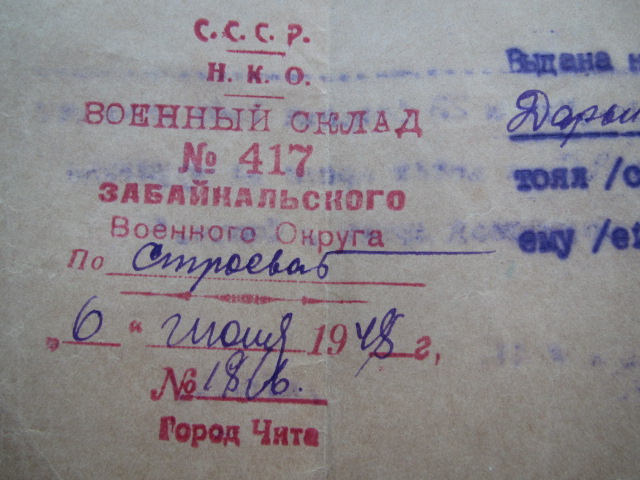 С.С.С.Р.
Н.К.О.
ВОЕННЫЙ СКЛАД
№ 417
ЗАБАЙКАЛЬСКОГО
Военного Округа
По Строевая
„6“ июля 1948 г,
№ 186.
Город Чита
Выдана
Дарьи
тоял /с
ему /е